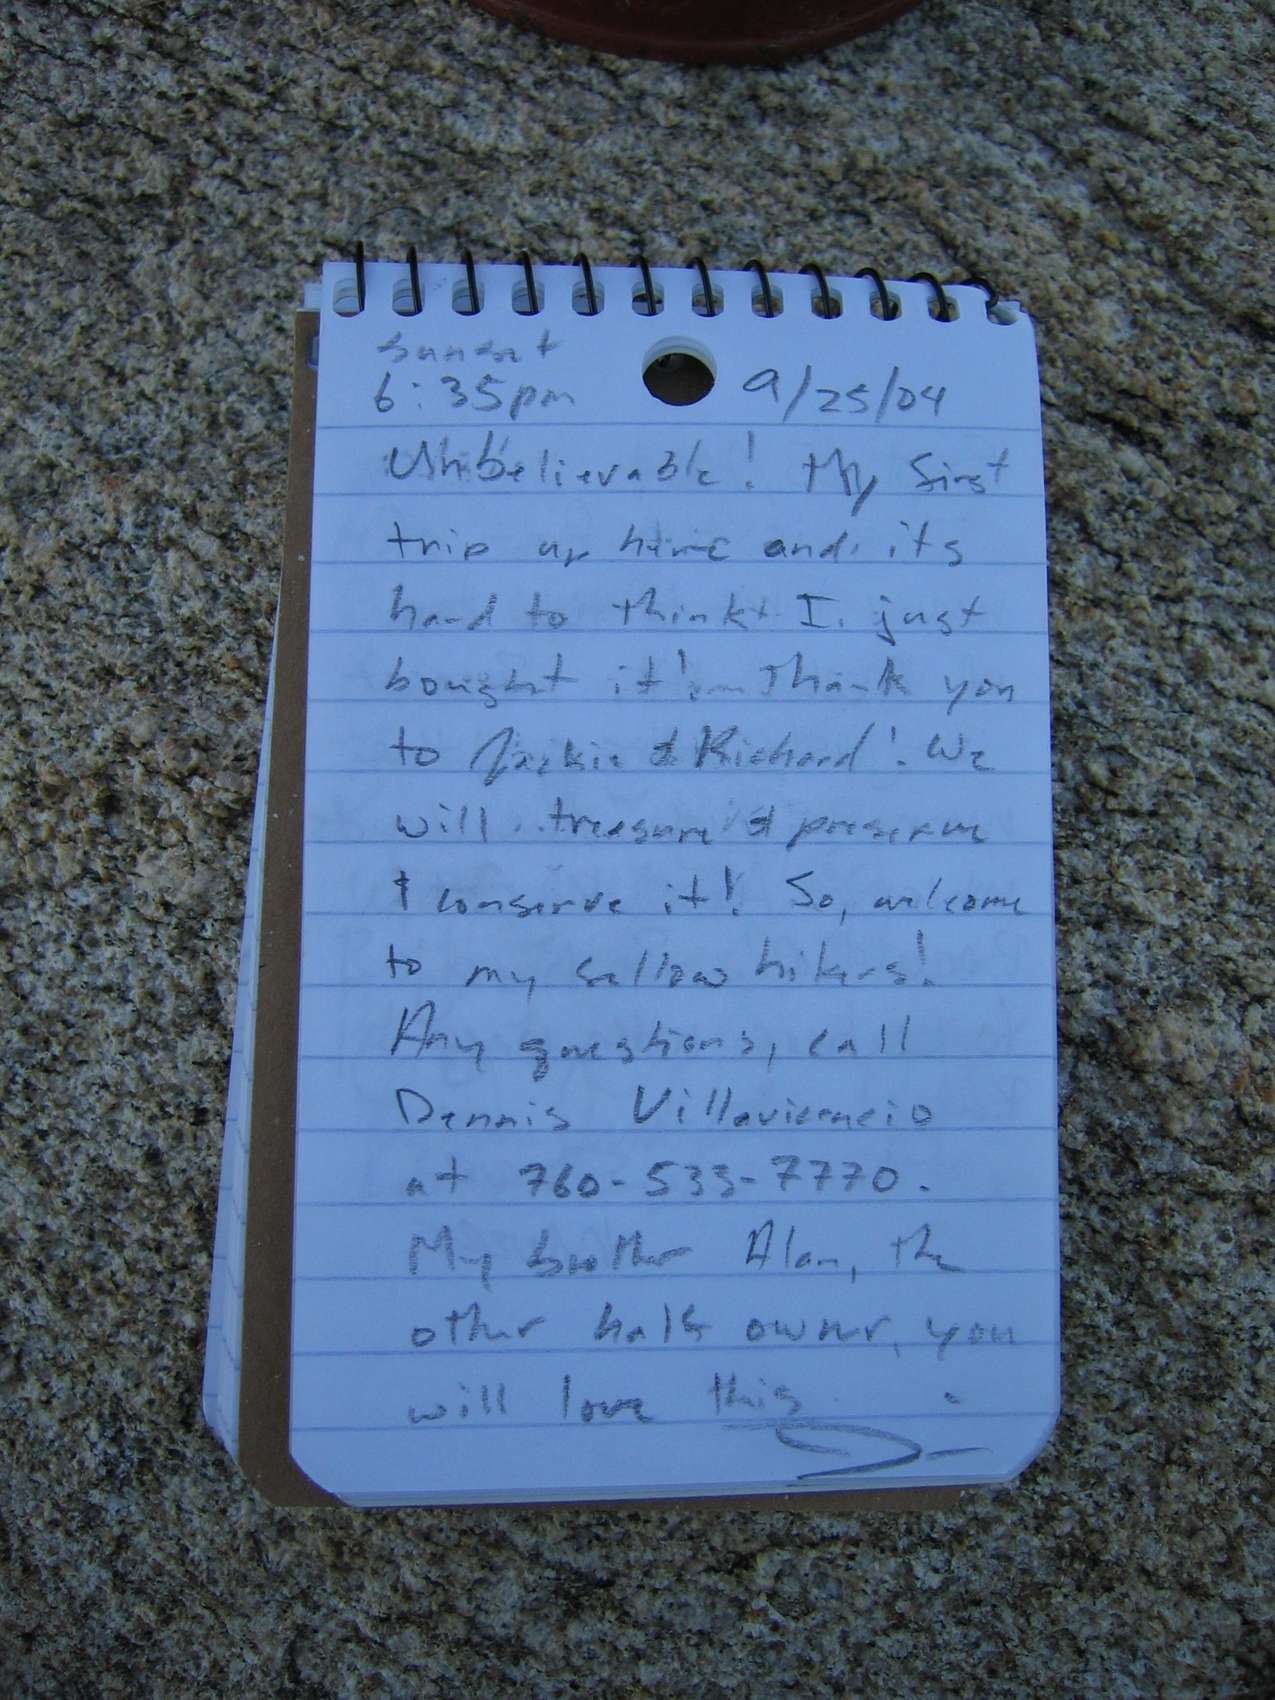 Sunset
6:35pm 9/25/04
Unbelievable! My first
trip up here and its
hard to think I just
bought it! Thank you
to Jackie & Richard! We
will treasure & preserve
& conserve it! So, welcome
to my fellow hikers!
Any questions, call
Dennis Villavicencio
at 760-533-7770.
My brother Alan, the
other half owner, you
will love this